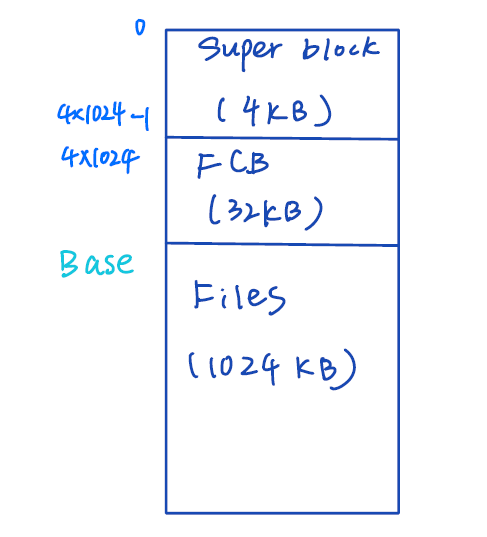 0
Super block
4×1024-1
(4KB)
4×1024
FCB
(32KB)
Base
Files
(1024 KB)